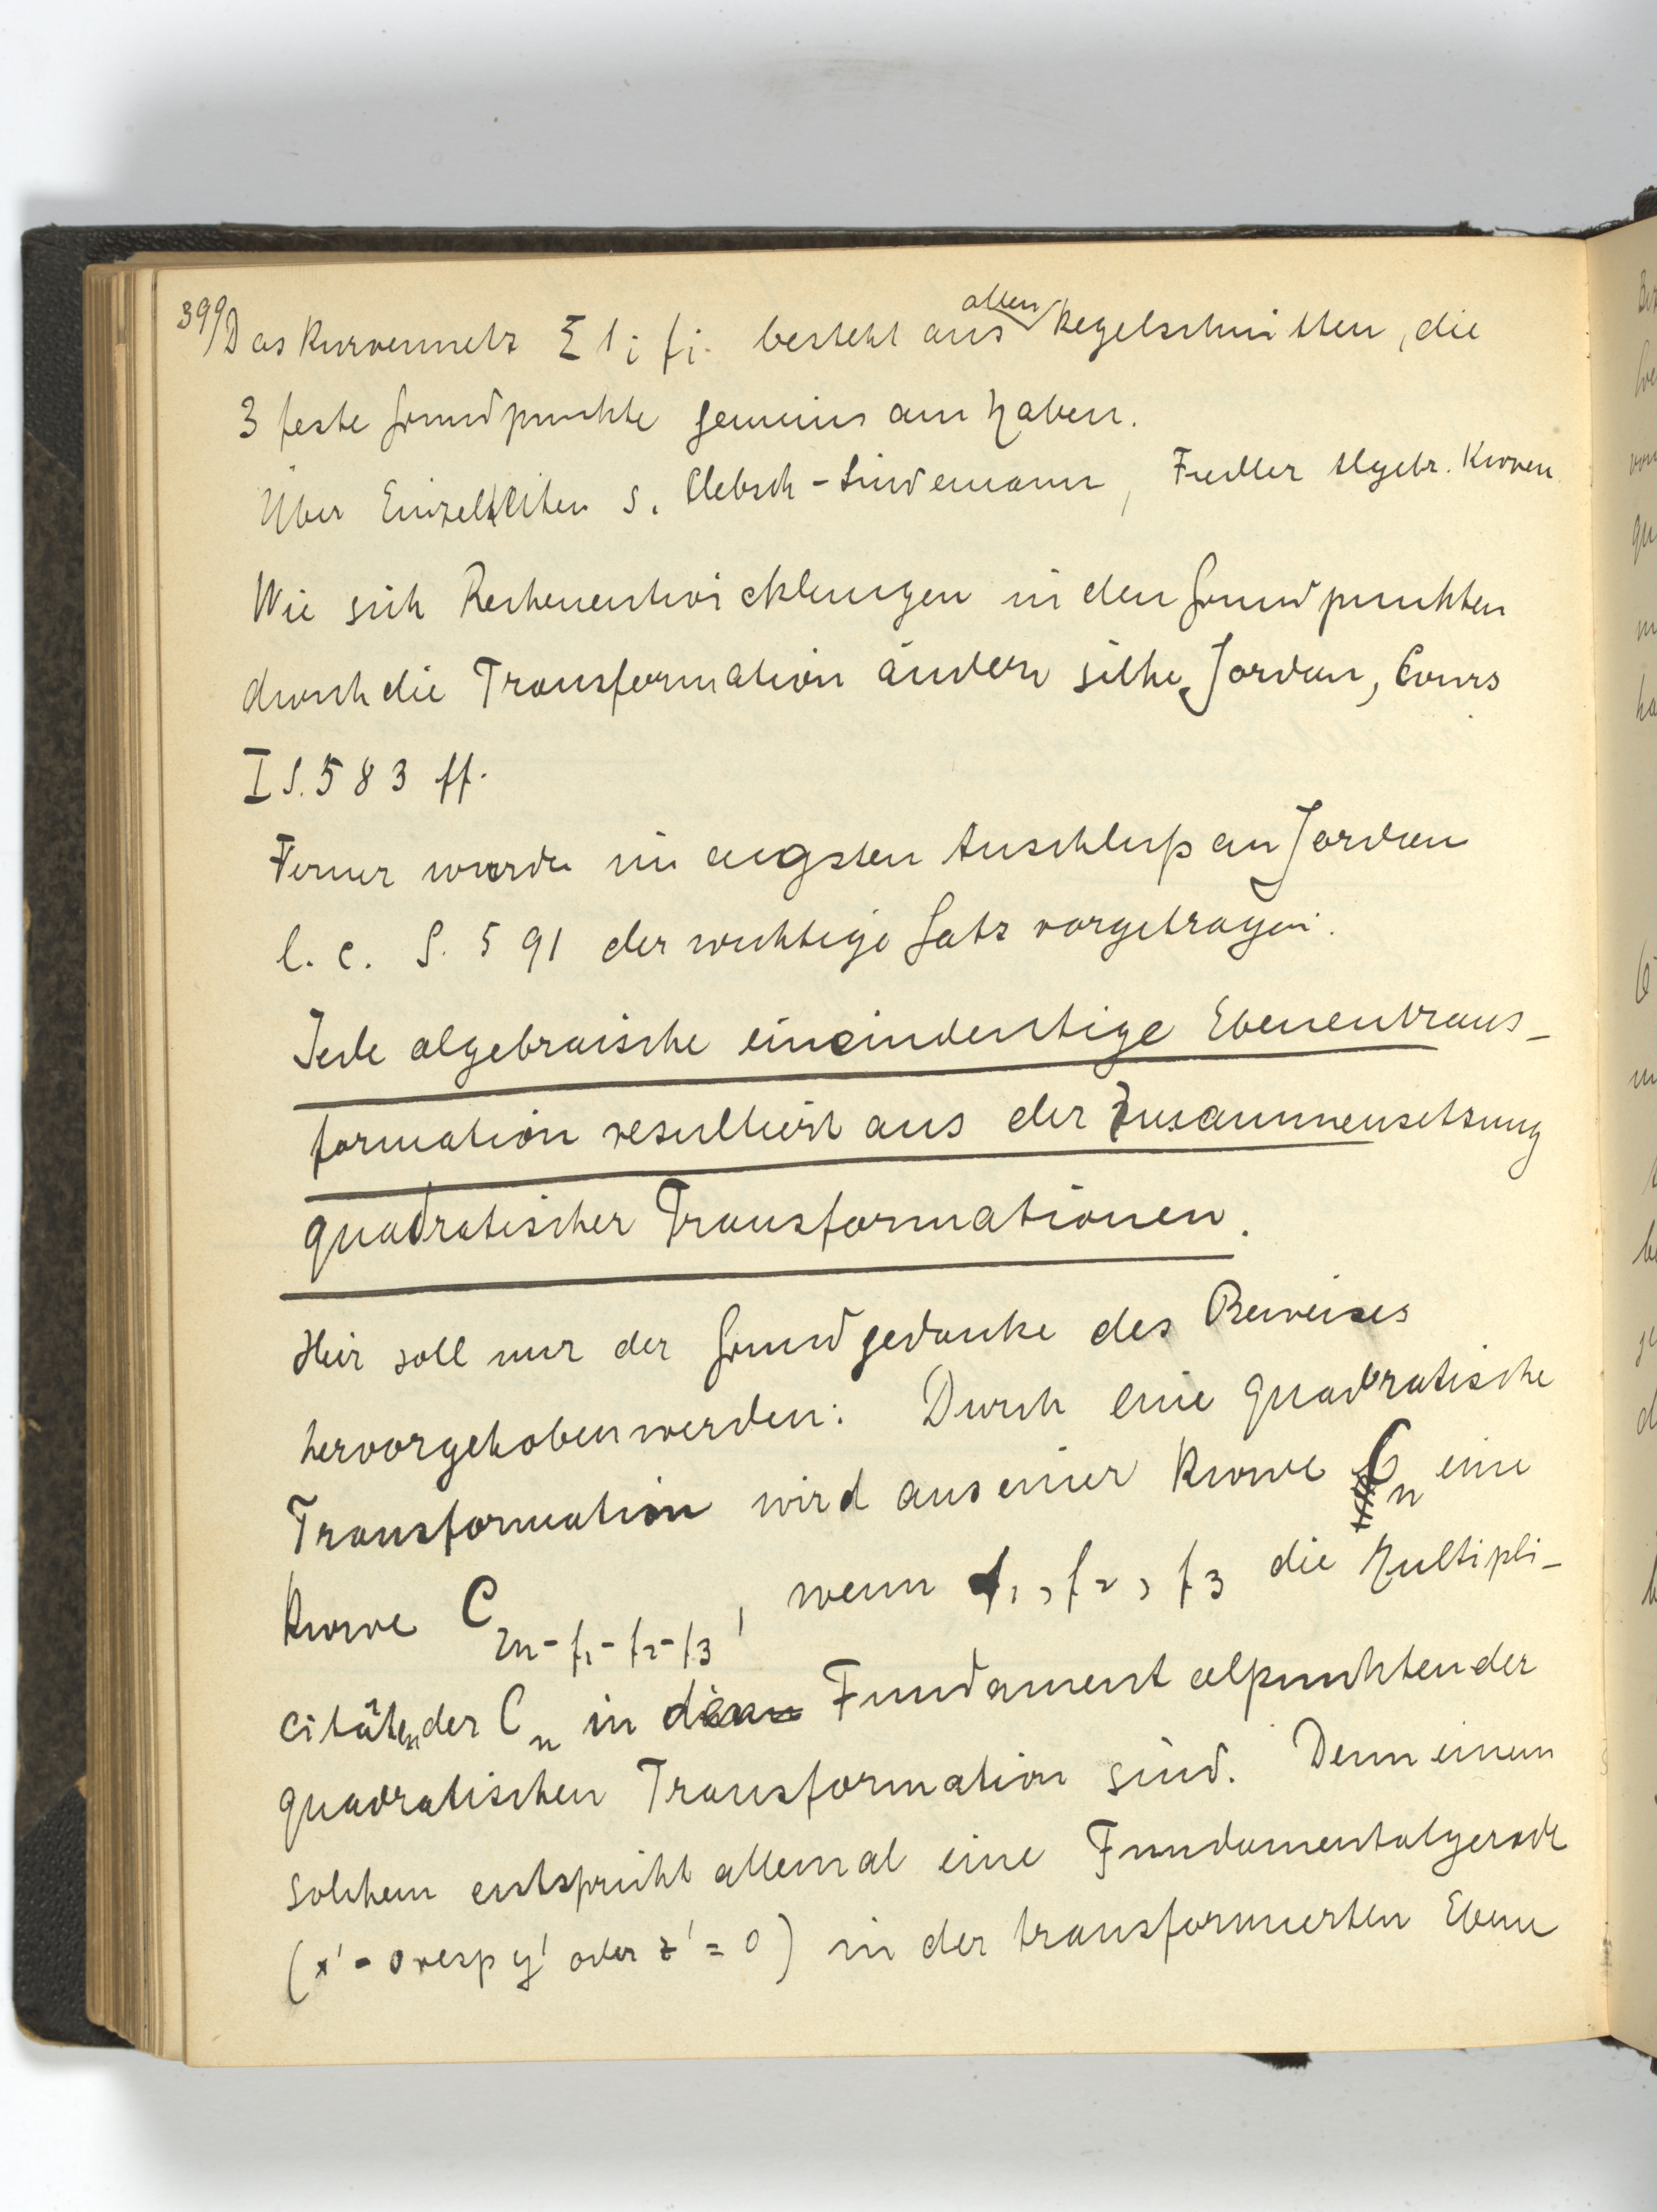 399) Das Kurvennetz Σ λi fi besteht aus allen Kegelschnitten, die
3 feste Grundpunkte gemeinsam haben.
Über Einzelheiten s. Clebsch-Lindemann, Fiedler Algebr. Kurven.
Wie sich Reihenentwicklungen in den Grundpunkten
durch die Transformation ändern siehe Jordan, Cours
I S. 583 ff.
Ferner wurde im engsten Anschluß an Jordan
l. c. S. 591 der wichtige Satz vorgetragen:
Jede algebraische eineindeutige Ebenentrans-
formation resultiert aus der Zusammensetzung
quadratischer Transformationen.
Hier soll nur der Grundgedanke des Beweises
hervorgehoben werden: Durch eine quadratische
Transformation wird aus einer Kurve Cn eine
Kurve C2n-f1-f2-f3, wenn f1, f2, f3 die Multipli-
citäten der Cn in den Fundamentalpunkten der
quadratischen Transformation sind. Denn einem
solchem entspricht allemal eine Fundamentalgerade
(x' = 0 resp y' oder z' = 0) in der transformierten Ebene